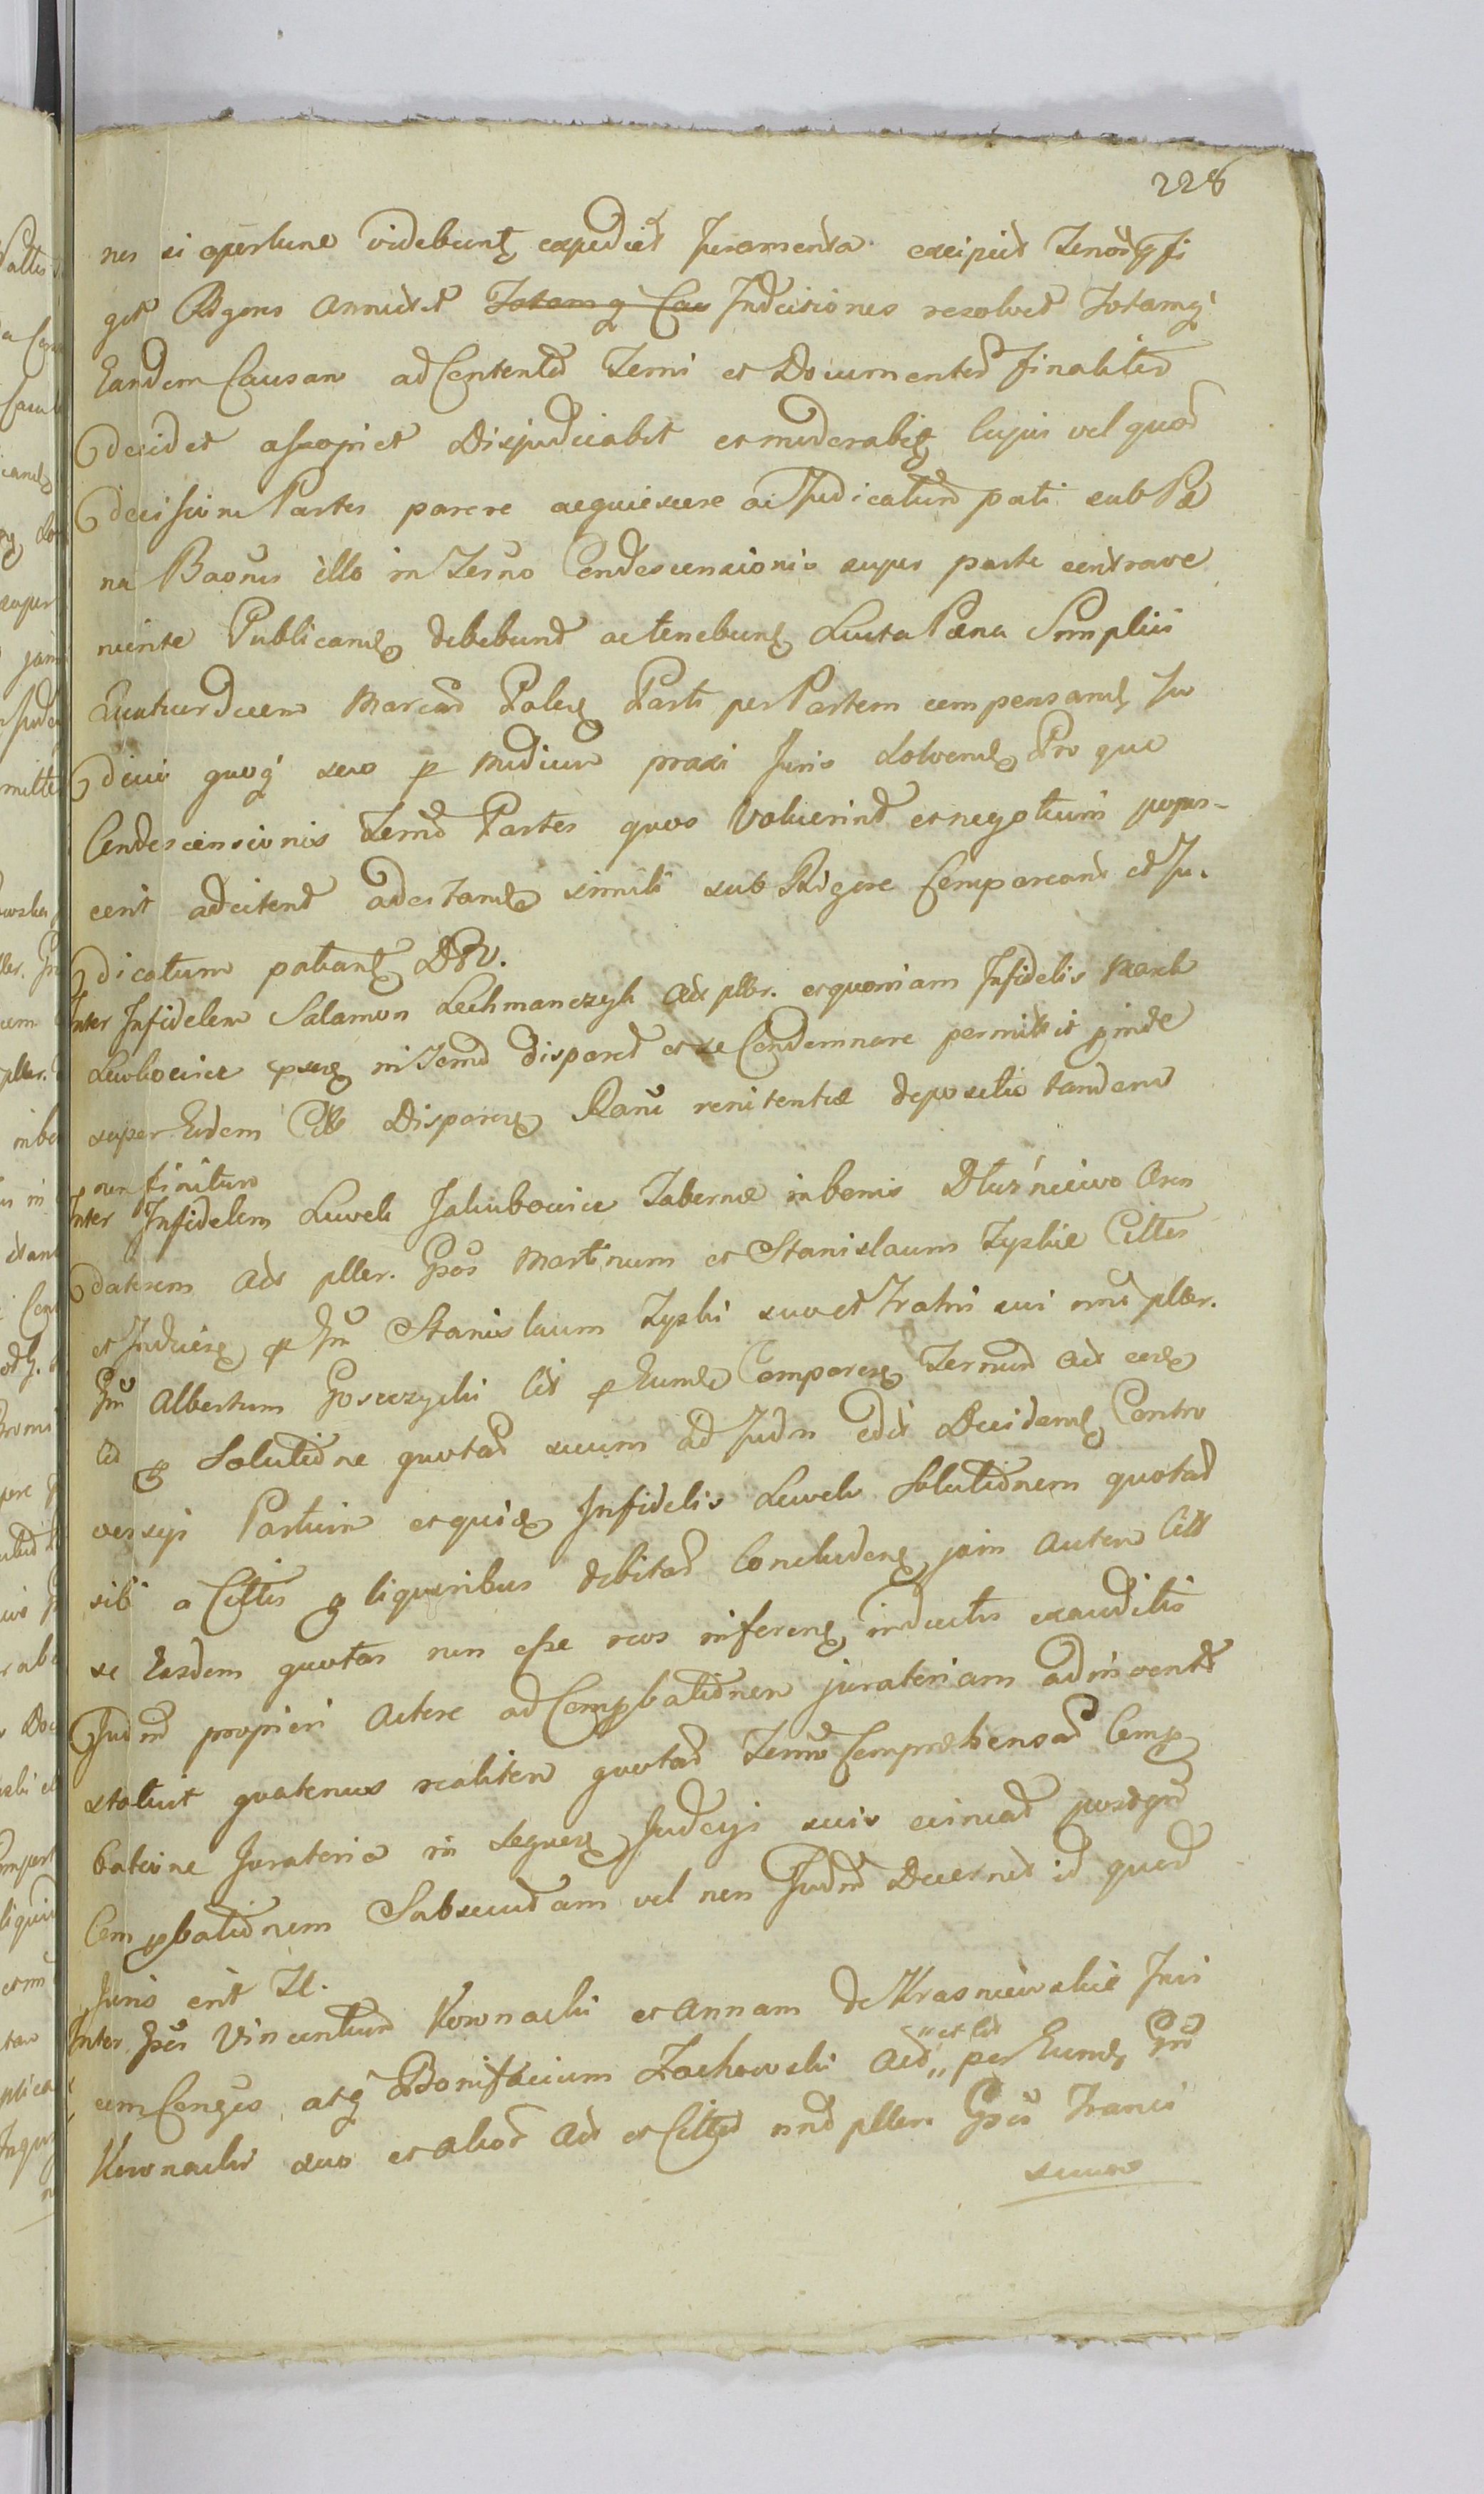 228
nes si opportune videbunt expediet Juramenta excipiet
get Rigores annectet Totamq Cau Indecisiones resolvet Totamq
Eandem Causam ad Contenta Termi et Documenter finaliter
decidet assopiet Disjudicabit et moderabit cujus vel quod
decissioni Partes parere acquiescere ac Judicatum pati sub Pæ
na Baonis illo in Termo Condescensionis super parte contrave
niente Publicand debebunt ac tenebunt Lucta Pæna Simplici
Quatuordecem Marcar Polon Parti per Partem compensand Ju
dicii quoq suo p medium praxi Juris solvend Pro quo
Condescensionis Termo Partes quos voluerint et negotium popos-
cerit adcitent adcitand simili sub Rigore Compareant et Ju.
dicatum patiant DRV.
Inter Infidelem Salamon Lechmanczyk Act pller. et quoniam Infidelis
Lewkowicz in Termo disparet et se Condemnare permittit
super Eidem Citt Disparen renitentia deposita tandem
non finitum
Inter Infidelem Lewek Jakubowicz Tabernæ in bonis Dłużniewo Aren
datorem Act pller. Gsos Martinum et Stanislaum Zyskie Cittos
et Inducen p Gm Stanislaum Zyski suo et Fratri sui nmi pller.
Gm Albertum Gosczycki Citt p Eund Comparen Termum act
Cit p Solutione quotar suum ad Judm edit Decidend Contro
versys Partium et quid Infidelis Lewek Solutionem quotar
sibi a Cittis p liquoribus debitar Concludens jam autem Citt
se Easdem quotas non esse reos inferens inductis exauditis
Judm propiori Actore ad Compbationem juratoriam adinvento
statuit quatenus realitem quotar Termo Comprehensar Comp
batione Juratoria in sequen Judcys suis evincat post qm
Compbationem Subsecutam vel non Judm Decernet id quod
Juris erit Tl.
Inter Gsos Vincentium Kownacki et Annam de Krasniewskie Juri
cum Conges atq Bonifacium Zachowski Act „et Cit„ per Eund Gm
Kownacki suo et alior Act et Cittor nmd pller Gsos Franci
scum